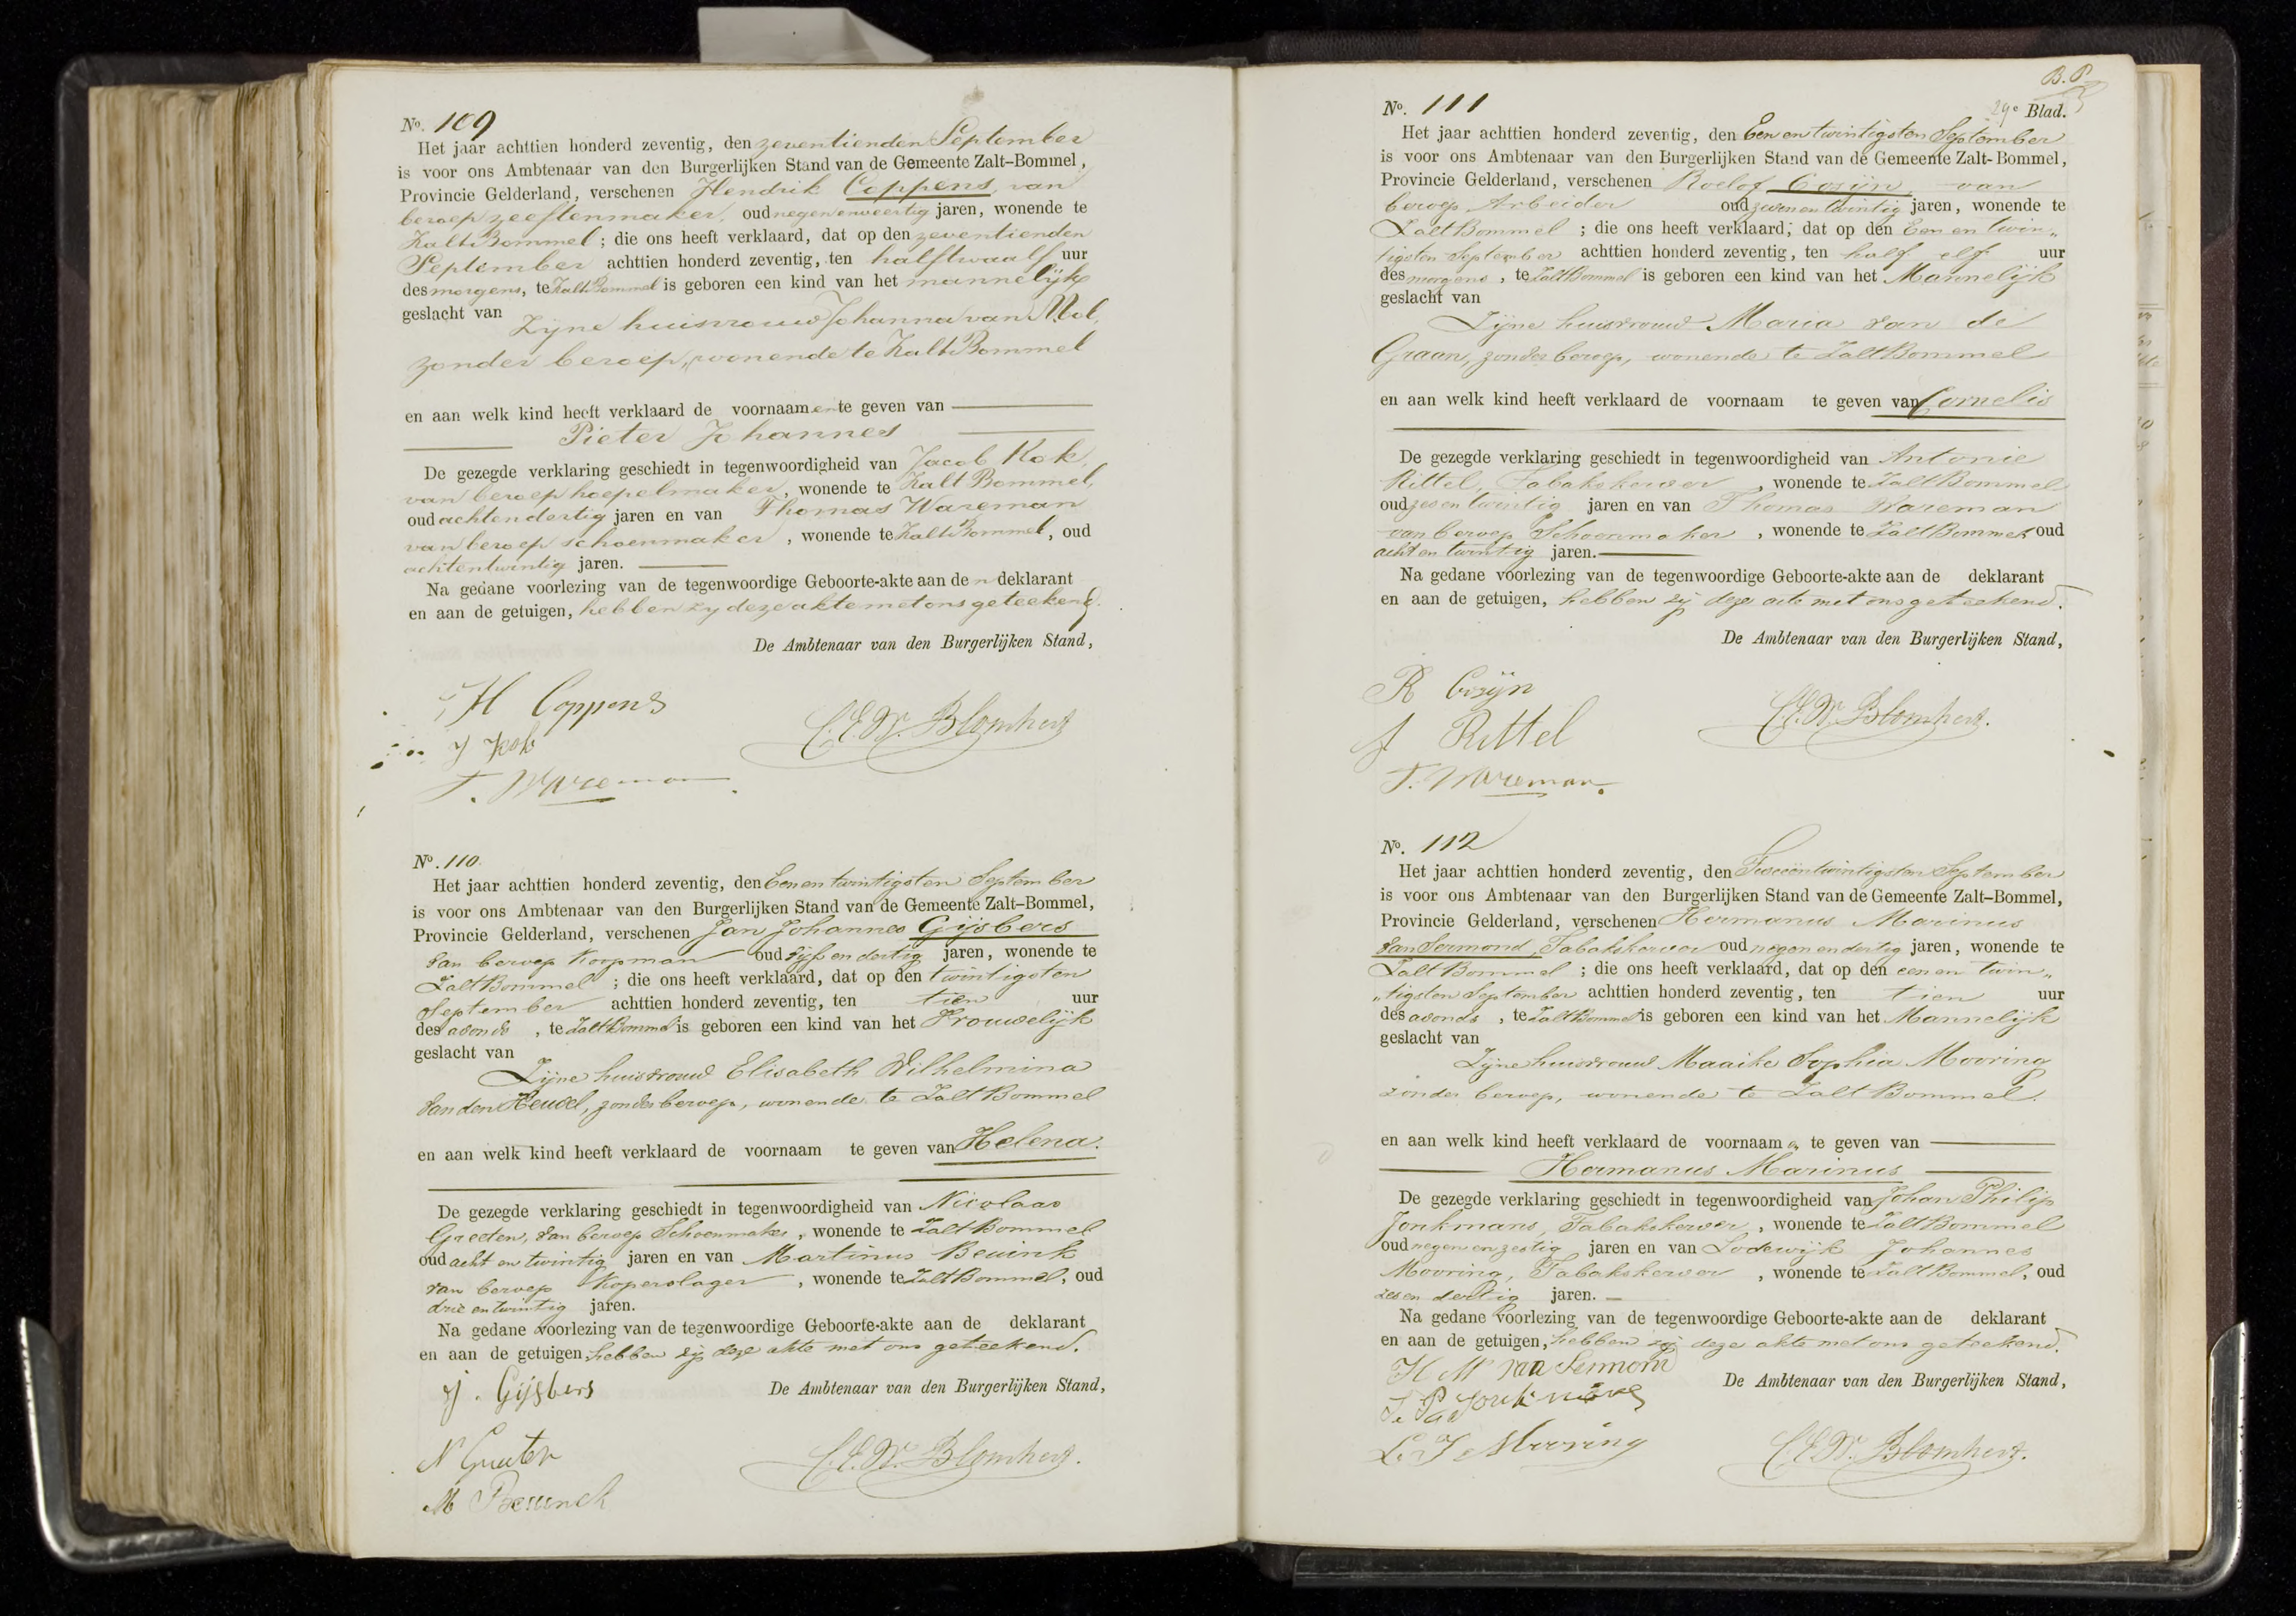 No. 109
Het jaar achttien honderd zeventig, den zeventienden September
is voor ons Ambtenaar van den Burgerlijken Stand van de Gemeente Zalt-Bommel,
Provincie Gelderland, verschenen Hendrik Coppens, van
beroep zeeftenmaker, oud negenenveertig jaren, wonende te
Zalt Bommel; die ons heeft verklaard, dat op den zeventienden
September achttien honderd zeventig, ten half twaalf uur
des morgens, te Zalt Bommel is geboren een kind van het mannelijk
geslacht van
Zijne huisvrouw Johanna van Mol,
zonder beroep, wonende te Zalt Bommel
en aan welk kind heeft verklaard de voornaamen te geven van
Pieter Johannes
De gezegde verklaring geschiedt in tegenwoordigheid van Jacob Kok,
van beroep hoepelmaker, wonende te Zalt Bommel,
oud achtendertig jaren en van Thomas Wareman
van beroep schoenmaker, wonende te Zalt Bommel, oud
achtentwintig jaren.
Na gedane voorlezing van de tegenwoordige Geboorte-akte aan den deklarant
en aan de getuigen, hebben zy deze akte met ons geteekend.
De Ambtenaar van den Burgerlijken Stand,
H Coppens
J Kok
T. Wareman
C.E.W. Blomhert
No. 110.
Het jaar achttien honderd zeventig, den Een en twintigsten September
is voor ons Ambtenaar van den Burgerlijken Stand van de Gemeente Zalt-Bommel,
Provincie Gelderland, verschenen Jan Johannes Gijsbers
van beroep Koopman oud vijf en dertig jaren, wonende te
Zalt Bommel; die ons heeft verklaard, dat op den twintigsten
September achttien honderd zeventig, ten tien uur
des avonds, te Zalt Bommel is geboren een kind van het Vrouwelijk
geslacht van
Zijne huisvrouw Elisabeth Wilhelmina
van den Heuvel, zonder beroep, wonende te Zalt Bommel
en aan welk kind heeft verklaard de voornaam te geven van Helena.
De gezegde verklaring geschiedt in tegenwoordigheid van Nicolaas
van beroep Schoenmaker, wonende te Zalt Bommel
oud acht en twintig jaren en van Martinus Beuink
van beroep Koperslager, wonende te Zalt Bommel, oud
drie en twintig jaren.
Na gedane voorlezing van de tegenwoordige Geboorte-akte aan de deklarant
en aan de getuigen, hebben zij deze akte met ons geteekend.
De Ambtenaar van den Burgerlijken Stand,
J. Gijsbers
N
M
C.E.W. Blomhert.
B.P.
29e Blad.
No. 111
Het jaar achttien honderd zeventig, den Een en twintigsten September
is voor ons Ambtenaar van den Burgerlijken Stand van de Gemeente Zalt-Bommel,
Provincie Gelderland, verschenen Roelof Cosijn van
beroep Arbeider oud zeven en twintig jaren, wonende te
Zalt Bommel; die ons heeft verklaard, dat op den Een en twin„
tigsten September achttien honderd zeventig, ten half elf uur
des morgens, te Zalt Bommel is geboren een kind van het Mannelijk
geslacht van
Zijne huisvrouw Maria van de
Graan, zonder beroep, wonende te Zalt Bommel
en aan welk kind heeft verklaard de voornaam te geven van Cornelis
De gezegde verklaring geschiedt in tegenwoordigheid van Antonie
Rittel, Tabakskerver, wonende te Zalt Bommel
oud zes en twintig jaren en van Thomas Wareman
van beroep Schoenmaker, wonende te Zalt Bommel oud
acht en twintig jaren.
Na gedane voorlezing van de tegenwoordige Geboorte-akte aan de deklarant
en aan de getuigen, hebben zij deze acte met ons geteekend.
De Ambtenaar van den Burgerlijken Stand,
R Cosijn
A Rittel
T. Wareman.
C.E.W. Blomhert.
No. 112
Het jaar achttien honderd zeventig, den Tweeëntwintigsten September
is voor ons Ambtenaar van den Burgerlijken Stand van de Gemeente Zalt-Bommel,
Provincie Gelderland, verschenen Hermanus Marinus
van Sermond, Tabakskerver oud negen en dertig jaren, wonende te
Zalt Bommel; die ons heeft verklaard, dat op den een en twin„
„tigsten September achttien honderd zeventig, ten tien uur
des avonds, te Zalt Bommel is geboren een kind van het Mannelijk
geslacht van
Zijne huisvrouw Maaike Sophia Mooring
zonder beroep, wonende te Zalt Bommel.
en aan welk kind heeft verklaard de voornaam te geven van
Hermanus Marinus
De gezegde verklaring geschiedt in tegenwoordigheid van Johan Philip
Jonkmans, Tabakskerver, wonende te Zalt Bommel
oud negen en zestig jaren en van Lodewijk Johannes
Mooring, Tabakskerver, wonende te Zalt Bommel, oud
zes en dertig jaren.
Na gedane voorlezing van de tegenwoordige Geboorte-akte aan de deklarant
en aan de getuigen, hebben zij deze akte met ons geteekend.
De Ambtenaar van den Burgerlijken Stand,
H M van Sermond
L. J Mooring
C.E.W. Blomhert.